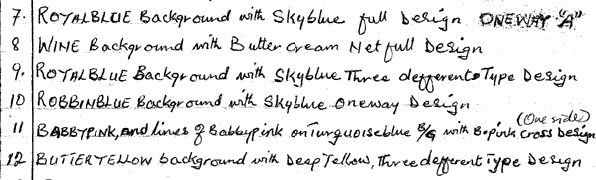 7. ROYALBLUE Background with Skyblue full Design ONEWAY "A"
8 WINE Background with Butter Cream Net full Design
9. ROYALBLUE Background with Skyblue Three defferent Type Design
10 ROBBINBLUE Background with Skyblue Oneway Design
(One side)
11 BABBYPINK, and lines of Babbypink on Turquoiseblue B/G with B.pink Cross Design
12 BUTTERYELLOW background with Deep Yellow, Three defferent Type Design